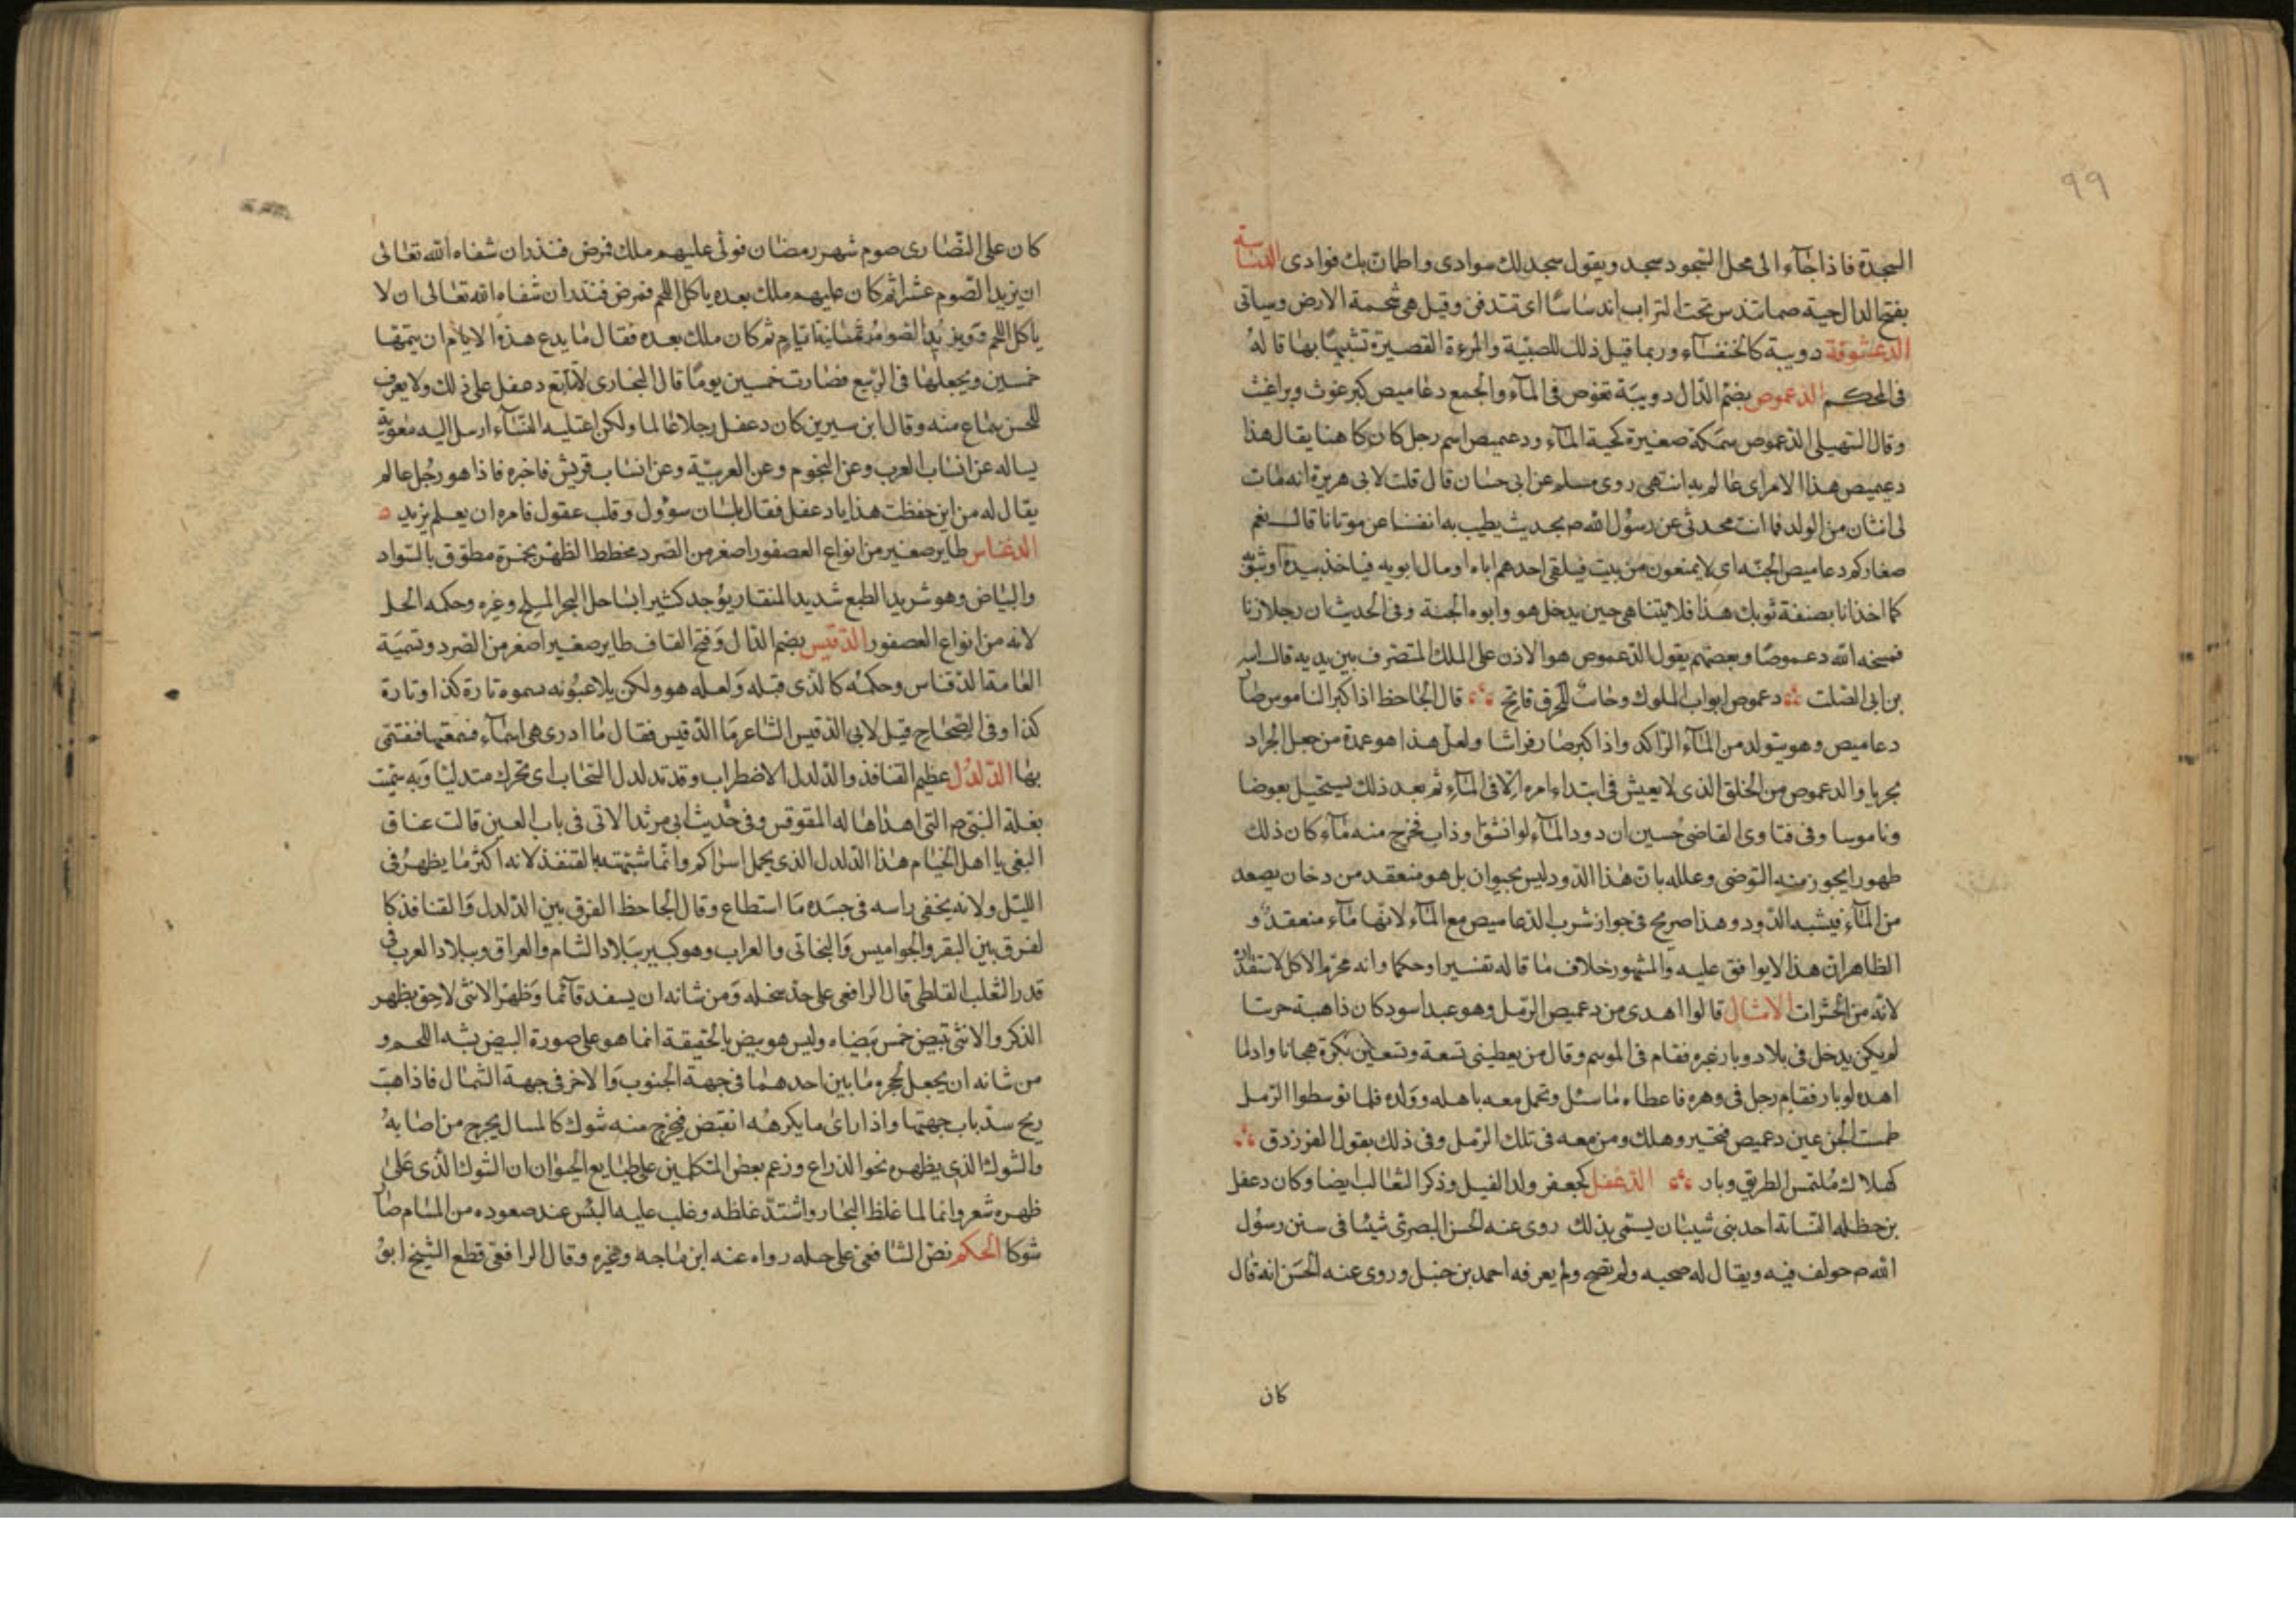 ٩٩
السجدة فاذا جآء الى محل السجود سجد ويقول سجد لك سوادى واطمان بك فوادى الدساسة
بفتح الدال حية صماتندس تحت التراب اندساسًا اى تندفن وقيل هى شحمة الارض وسياتى
الدعشوقة دويبة كالخنفسآء وربما قيل ذلك للصبيّة والمرءة القصيرة تشبيهًا بها قا لهُ
فى المحكم الدعموص بضم الدّال دويبّة تغوص فى المآء والجمع دعاميص كبرغوث وبراغيث
وقال السّهيلى الدعموص سمكة صغيرة كحية المآء ودعميص اسم رجل كان كا هنا يقال هذا
دعيميص هذا الامر اى عالم به انتهى روى مسلم عن ابى حسان قال قلت لابى هريرة انه مات
لى اثنان من الولد فما انت محدثى عن رسول الله ص بحديث يطيب به انفسنا عن موتانا قال نعم
صغاركم دعاميص الجنّه اى لا يمنعون من بيت فيلقى احدهم اباه او قال ابويه فياخذ بيده او بثوبه
كما اخذ انا بصنفة ثوبك هذا فلا يتناهى حين يدخل هو وابوه الجنة وفى الحديث ان رجلا زنا
فمسخه الله دعموصًا وبعضهم يقول الدّعموص هو الاذن على الملك المتصرف بين يديه قال اميه
بن ابى الصّلت دعموص ابواب الملوك وحاث للخرق فاتح قال الجاحظ اذا كبر الناموس صار
دعاميص وهو يتولد من المآء الراكد واذا كبر صار فراشا ولعل هذا هو عمدة من جعل الجراد
بحريا والدعموص من الخلق الذى لا يعيش فى ابتداء امره الّا فى المآء ثم بعد ذلك يستحيل بعوضا
وناموسا وفى فتاوى القاضى حسين ان دود المآء لو انشق وذاب فخرج منه مآء كان ذلك
طهورا يجوز منه التوضى وعلله بان هذا الدّود ليس بحيوان بل هو منعقد من دخان يصعد
من المآء فيشبه الدّود وهذا صريح فى جواز شرب الدعاميص مع المآء لانها مآء منعقد و
الظاهر ان هذا لا يوافق عليه والمشهور خلاف ما قا له تفسيرا وحكما وانه محرّم الاكل لاستقذاره
لانّه من الحشرات الامثال قالوا اهدى من دعميص الرّمل وهو عبد اسود كان ذاهبة حربتا
لم يكن يدخل فى بلاد وبار غيره فقام فى الموسم وقال من يعطينى تسعة وتسعين بكرة هجانا وادلما
اهده لوبار فقام رجل فى وهره فاعطاه ما سئل وتحمل معه باهله وولده فلما توسطوا الرّمل
طمست الجن عين دعميص فتحير وهلك ومن معه فى تلك الرّمل وفى ذلك يقول الفرزدق
كهلاك مُلتمس الطريق وبار الدّغفل كجعفر ولد الفيل وذكر الثعالب ايضا وكان دعفل
بن حظله النسابة احد بنى شيبان يسمى بذلك روى عنه الحسن البصرى شيئا فى سنن رسول
الله ص حولف فيه ويقال له صحبه ولم تصح ولم يعرفه احمد بن حنبل وروى عنه الحسن انه قال
كان
كان على النّصارى صوم شهر رمضان فولّى عليهم ملك فمرض فنذر ان شفاه الله تعالى
ان يزيد الصّوم عشرا ثم كان عليهم ملك بعده ياكل اللحم فمرض فنذر ان شفاه الله تعالى ان لا
ياكل اللحم ويزيد الصّوم ثمانية ايام ثم كان ملك بعده فقال ما يدع هذه الايام ان يتمها
خمسين ويجعلها فى الرّبيع فصارت خمسين يومًا قال البخارى لا يتابع دعفل على ذلك ولا يعرف
للحسن سماع منه وقال ابن سيرين كان دعفل رجلا عالما ولكن اعتليه النّساء ارسل اليه معوية
يساله عن انساب العرب وعن النجوم وعن العربيّة وعن انساب قريش فاخبره فاذا هو رجل عالم
يقال له من اين حفظت هذا يا دعفل فقال بلسان سؤول وقلب عقول فامره ان يعلم يزيد
الدغناس طاير صغير من انواع العصفور اصغر من الصّرد مخطط الظهر بحمرة مطوّق بالسّواد
والبياض وهو شريد الطبع شديد المنقار يوجد كثيرا بساحل البحر المليح وغيره وحكمه الحل
لانه من انواع العصفور الدّقيس بضم الدّال وفتح القاف طاير صغير اصغر من الصّرد وتسميَة
العامة الدّقناس وحكمُه كالّذى قبله ولعله هو ولكن يلاعبونه بسموه تارة كذا وتارة
كذا وفى الصّحاح قيل لابى الدّقيس الشاعر ما الدّقيس فقال ما ادرى هى اسمآء نسمعها فنتسمى
بها الدّلدُل عظيم القنافذ والدّلدل الاضطراب وقد تدلدل السّحاب اى تحرك متدليًا وبه سمّيت
بغلة النبى ص التى اهداها له المقوقس وفى حديث ابى مرثد الاتى فى باب العين قالت عناق
البغى يا اهل الخيام هذا الدّلدل الذى يحمل اسراكم وانّما شبّهته بالقنفذ لانه اكثر ما يظهر فى
الليّل ولانه يخفى راسه فى جسَده ما استطاع وقال الجاحظ الفرق بين الدّلدل والقنافذ كا
لفرق بين البقر والجواميس والبخاتى والعراب وهو كبير ببلاد الشام والعراق وببلاد العرب فى
قدر الثعلب القلطى قال الرافعى على حدّ سخله ومن شانه ان يسفد قآئما وظهر الانثى لاحق بظهر
الذكر والانثى تبيض خمس بَيضاه وليس هو بيض بالحقيقة انما هو على صورة البيض يشبه اللحم و
من شانه ان يجعل لحجره بابين احدهما فى جهة الجنوب والاخر فى جهة الشمال فاذا هبت
ريح سدّ باب جهتها واذا راى ما يكرهُه انقبض فيخرج منه شوك كالمسال يجرح من اصابهُ
والشوك الذى يظهره نحو الذراع وزعم بعض المتكلمين على طبايع الحيوان ان الشوك الذى على
ظهره شعر وانما لما غلظ البخار واشتد غلظه وغلب عليه اليبس عند صعوده من المسام صار
شوكا الحكم نصّ الشافعى على حله رواه عنه ابن ماجه وغيره وقال الرافعى قطع الشيخ ابو